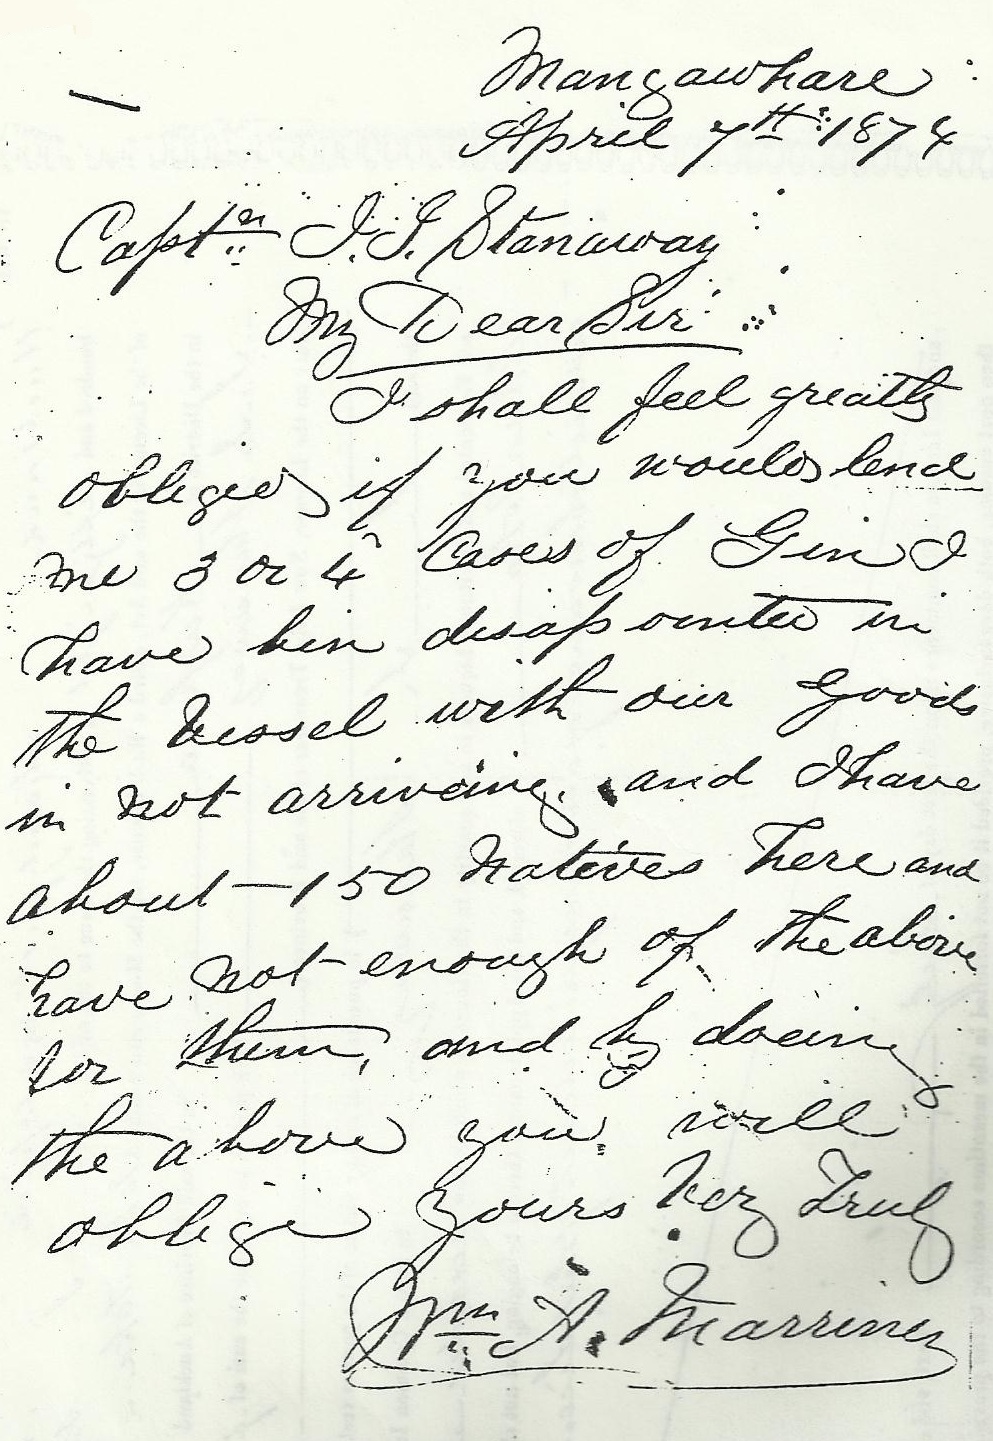 Mangawhare
April 7th 1874
Captn J. J. Stanaway
My Dear Sir
I shall feel greatly
obliged if you would lend
me 3 or 4 Cases of Gin I
have bin disapointed in
the Vessel with our Goods
in Not arriveing. and I have
about - 150 Natives here and
have Not enough of the above
for them, and by doeing
the above you will
oblige Yours Very Truly
Wm A. Marriner